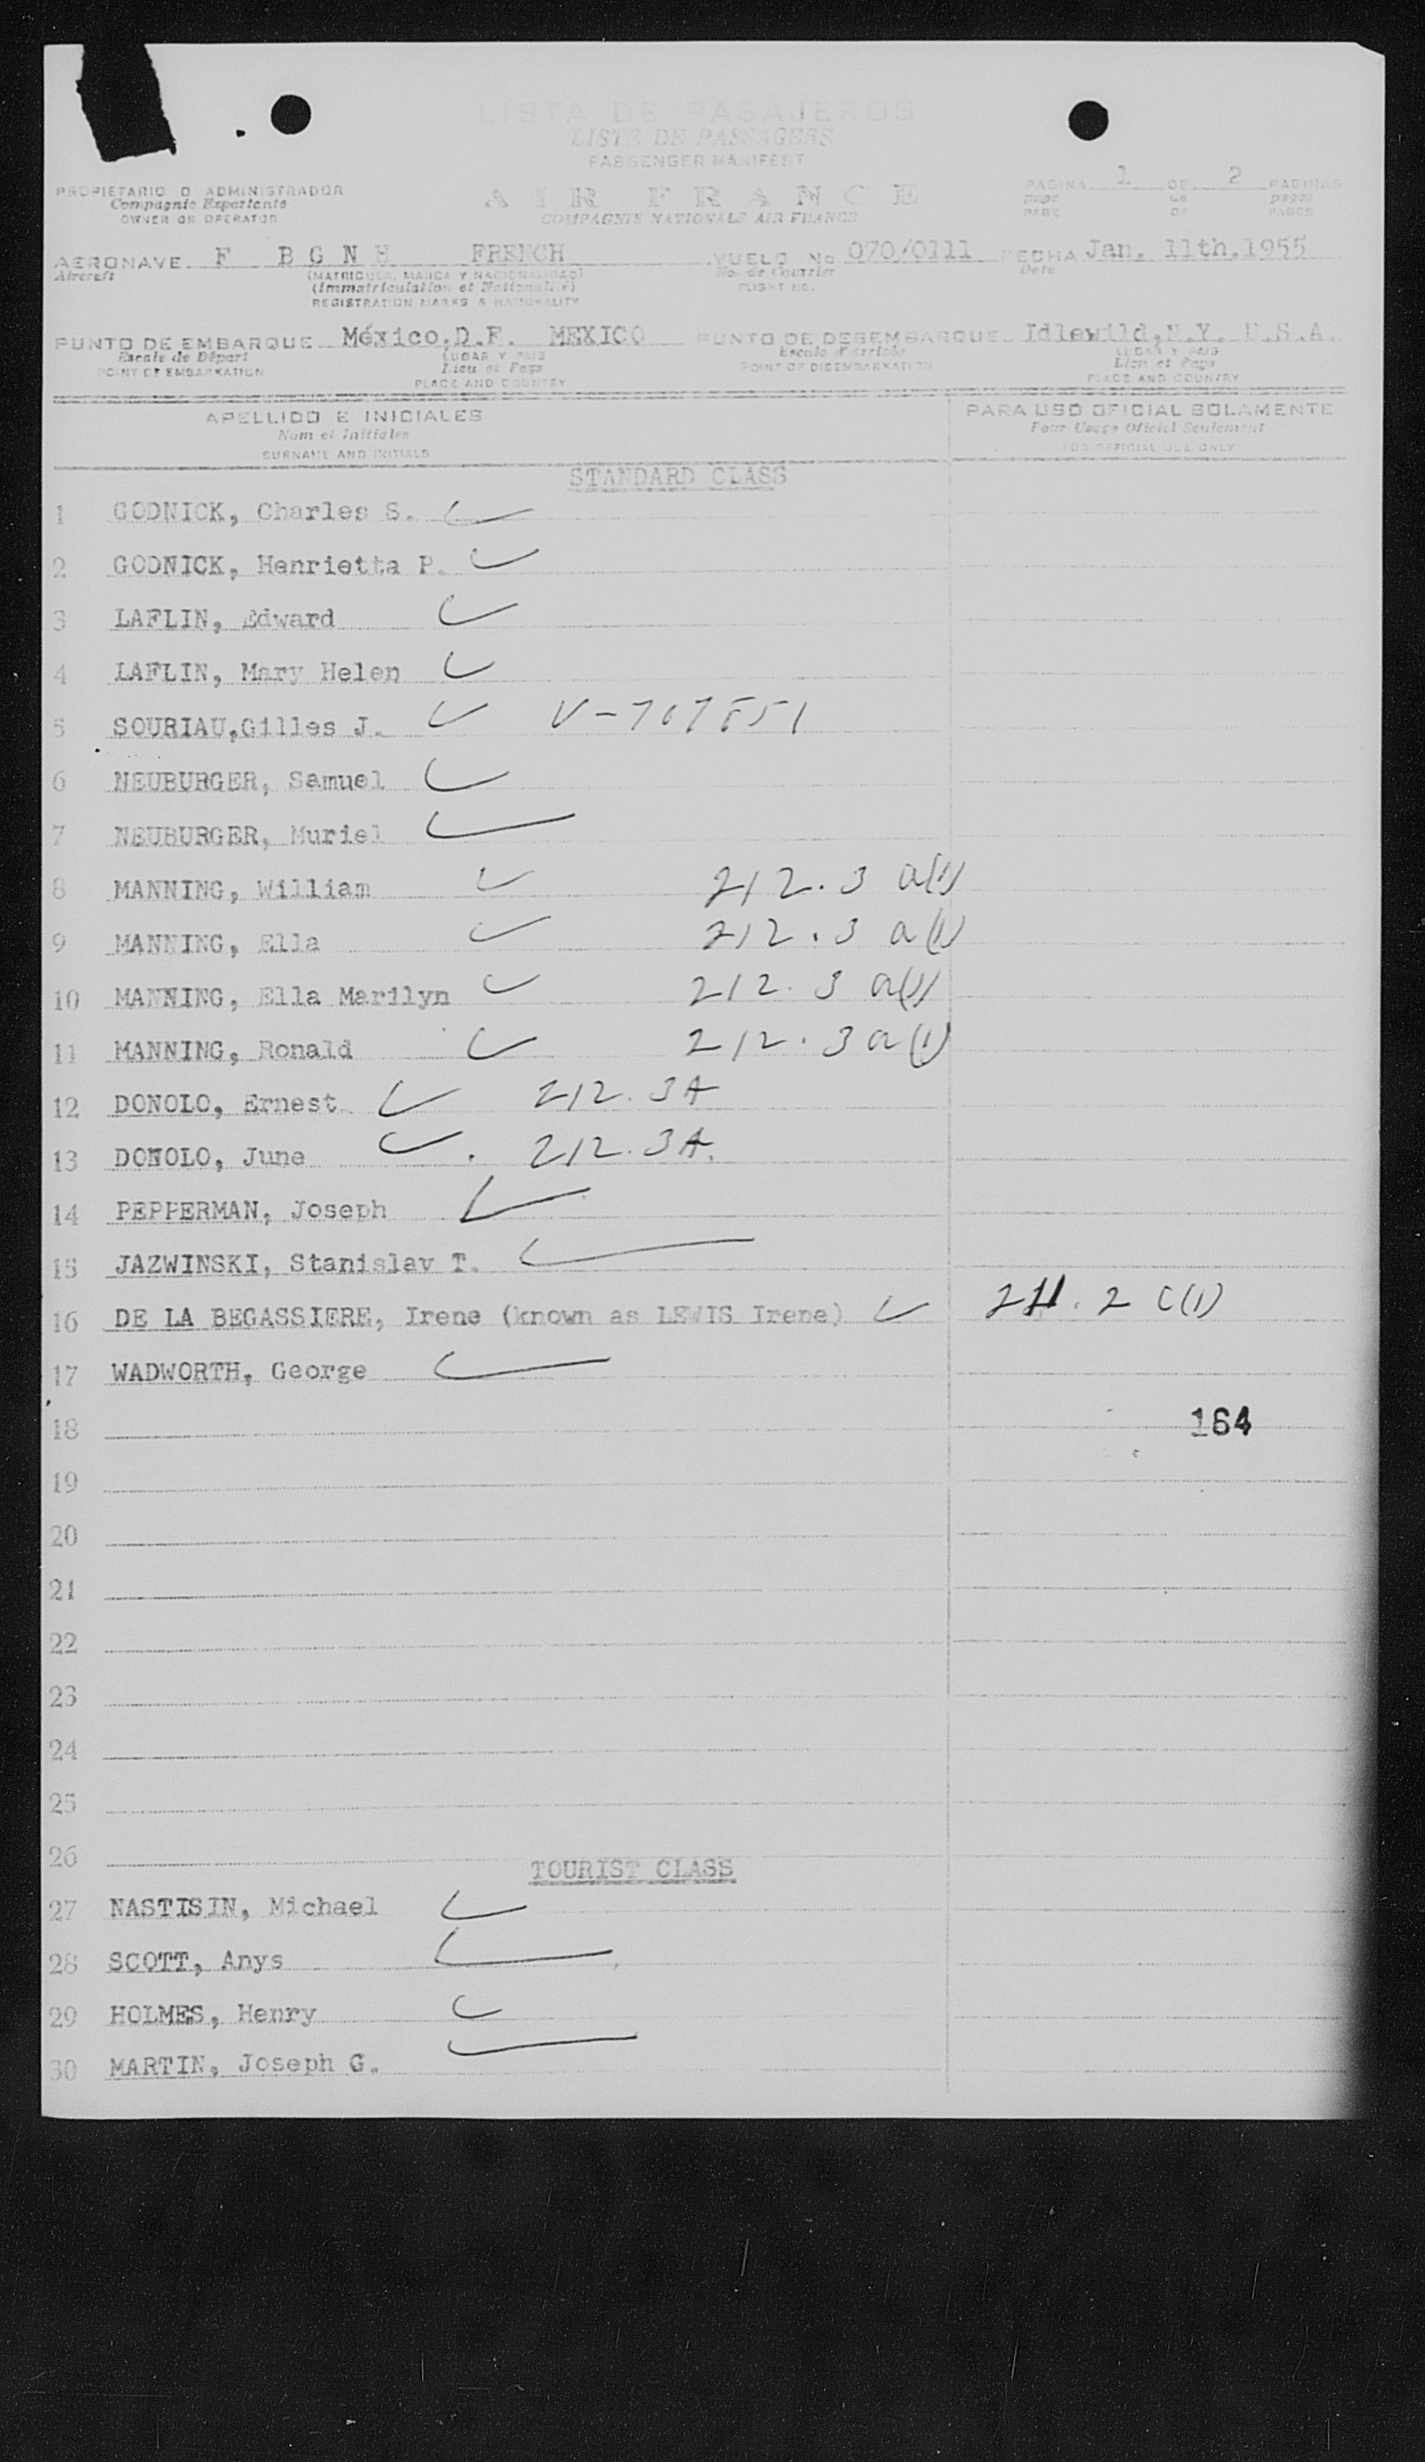 LISTA DE PASAJEROS
LISTE DE PASSAGERS
PASSENGER MANIFEST
PROPIETARIO O ADMINISTRADOR
Compagnie Exportante
OWNER OR OPERATOR
AIR FRANCE
COMPAGNIE NATIONALE AIR FRANCE
PAGINA 1 DE 2 PAGINAS
page de pages
PAGE OF PAGES
AERONAVE F BGNH FRENCH VUELO No 070/0111 FECHA Jan. 11th.1955
Aircraft (MATRICULA, MARCA Y NACIONALIDAD) No. de Courrier Date
(Immatriculation et Nationalité) FLIGHT NO.
REGISTRATION MARKS & NATIONALITY
PUNTO DE EMBARQUE México,D.F. MEXICO PUNTO DE DESEMBARQUE Idlewild,N.Y. U.S.A.
Escale de Départ LUGAR Y PAIS Escale d'arrivée LUGAR Y PAIS
POINT OF EMBARKATION Lieu et Pays POINT OF DISEMBARKATION Lieu et Pays
PLACE AND COUNTRY PLACE AND COUNTRY
APELLIDO E INICIALES PARA USO OFICIAL SOLAMENTE
Nom et Initiales Pour Usage Oficiel Seulement
SURNAME AND INITIALS FOR OFFICIAL USE ONLY
STANDARD CLASS
1 GODNICK, Charles S.
2 GODNICK, Henrietta P.
3 LAFLIN, Edward
4 LAFLIN, Mary Helen
5 SOURIAU,Gilles J. V-707851
6 NEUBURGER, Samuel
7 NEUBURGER, Muriel
8 MANNING, William 212.3 a(1)
9 MANNING, Ella 212.3 a(1)
10 MANNING, Ella Marilyn 212.3 a(1)
11 MANNING, Ronald 212.3 a(1)
12 DONOLO, Ernest 212.3A
13 DONOLO, June 212.3A.
14 PEPPERMAN, Joseph
15 JAZWINSKI, Stanislav T.
16 DE LA BEGASSIERE, Irene (known as LEWIS Irene) 211.2 C(1)
17 WADWORTH, George
18 164
19
20
21
22
23
24
25
26
TOURIST CLASS
27 NASTISIN, Michael
28 SCOTT, Anys
29 HOLMES, Henry
30 MARTIN, Joseph G.